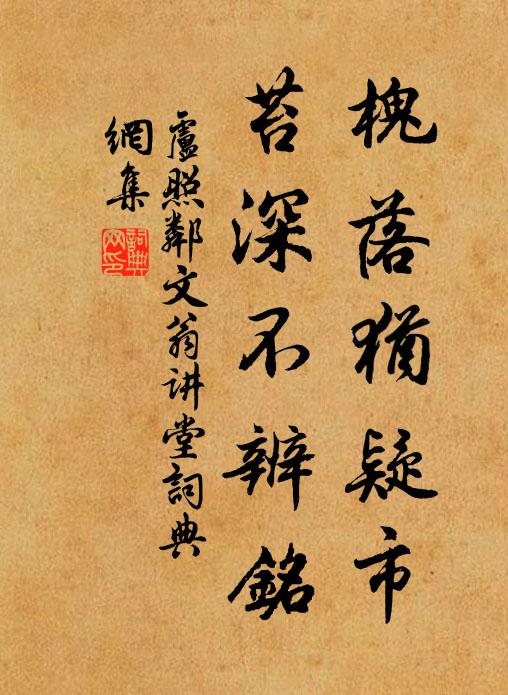 槐落猶疑市
苔深不辨銘
盧照鄰文翁讲堂詞典
網集
詞典
网印